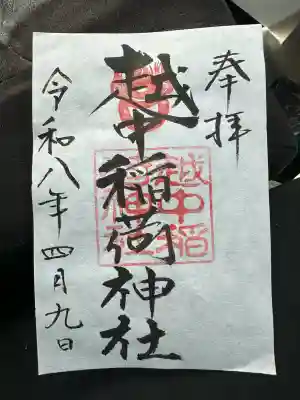 奉拝
越中稲荷神社
令和八年四月九日
越中稲
荷神社